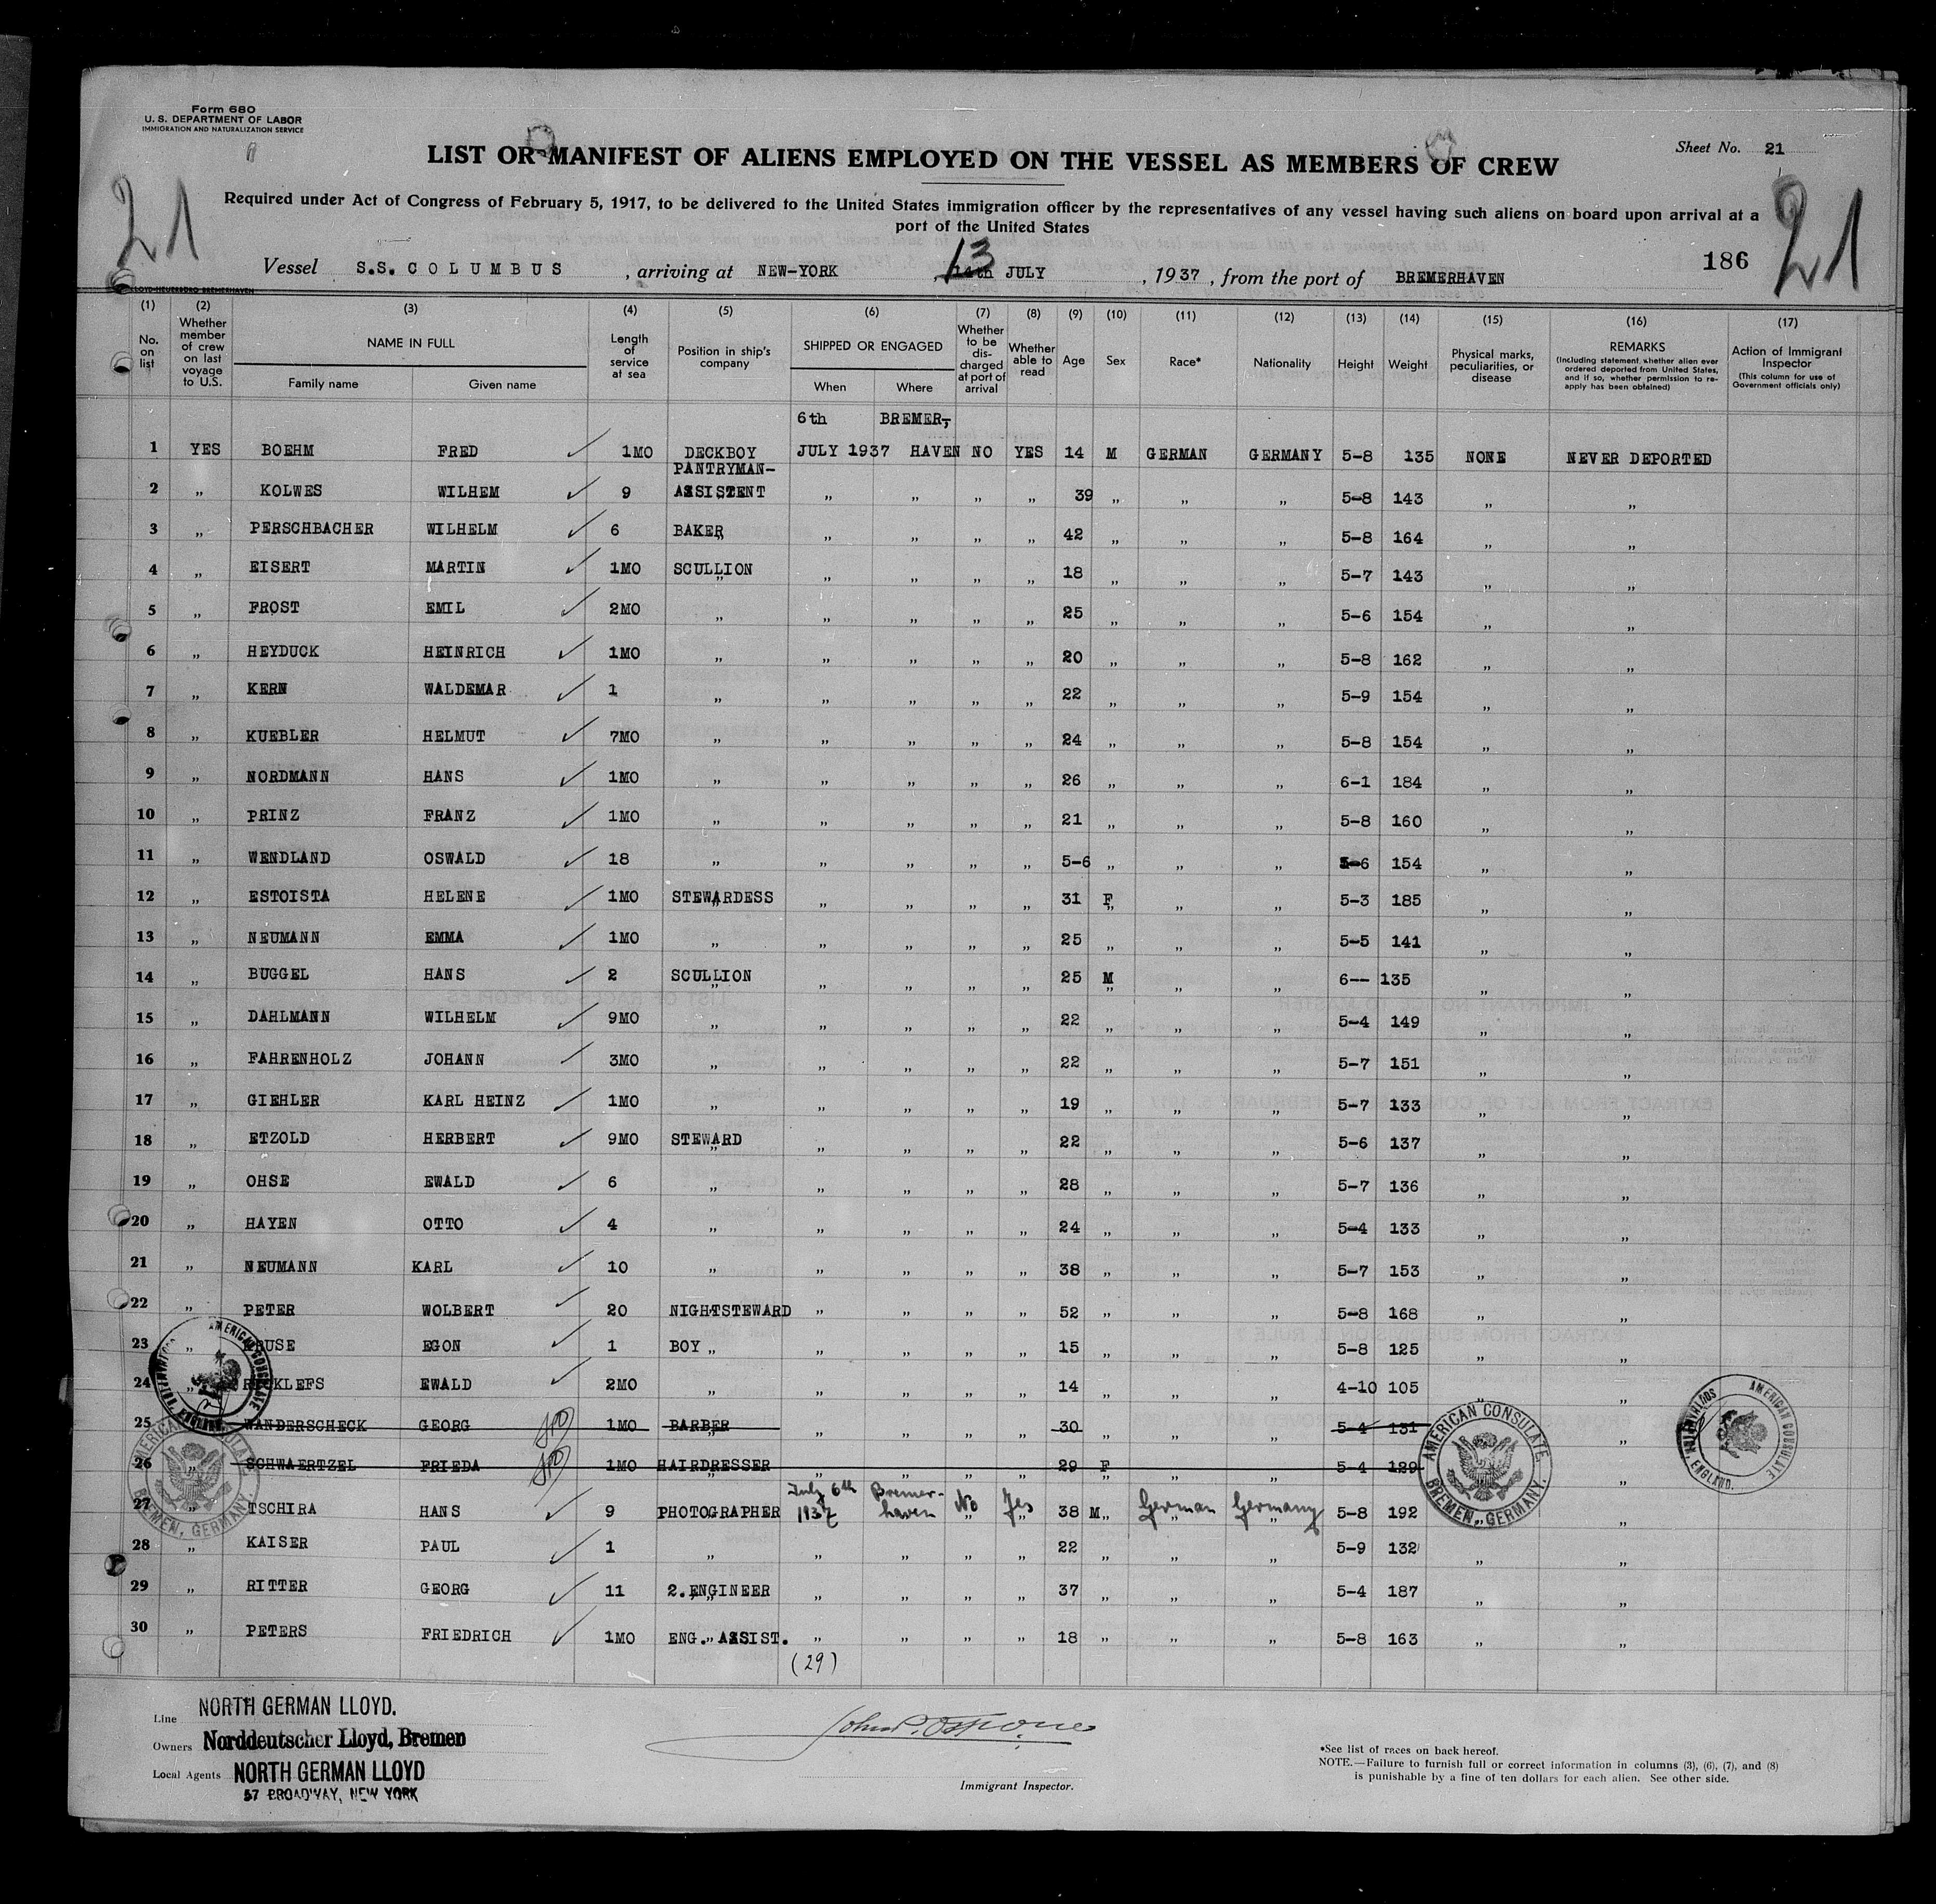 Form 680
U. S. DEPARTMENT OF LABOR
IMMIGRATION AND NATURALIZATION SERVICE
Sheet No. 21
LIST OR MANIFEST OF ALIENS EMPLOYED ON THE VESSEL AS MEMBERS OF CREW
21 21
Required under Act of Congress of February 5, 1917, to be delivered to the United States immigration officer by the representatives of any vessel having such aliens on board upon arrival at a
port of the United States
186
Vessel S.S. COLUMBUS, arriving at NEW-YORK, 13 14th JULY, 1937, from the port of BREMERHAVEN
(1) (2) (3) (4) (5) (6) (7) (8) (9) (10) (11) (12) (13) (14) (15) (16) (17)
No. on list
Whether member of crew on last voyage to U.S.
NAME IN FULL
Family name Given name
Length of service at sea
Position in ship's company
SHIPPED OR ENGAGED
When Where
Whether to be discharged at port of arrival
Whether able to read
Age
Sex
Race*
Nationality
Height
Weight
Physical marks, peculiarities, or disease
REMARKS
(Including statement whether alien ever ordered deported from United States, and if so, whether permission to reapply has been obtained)
Action of Immigrant Inspector
(This column for use of Government officials only)
6th BREMER-
1 YES BOEHM FRED ✓ 1MO DECKBOY JULY 1937 HAVEN NO YES 14 M GERMAN GERMANY 5-8 135 NONE NEVER DEPORTED
PANTRYMAN-
2 " KOLWES WILHEM ✓ 9 ASSISTENT " " " " 39 " " " 5-8 143 " "
3 " PERSCHBACHER WILHELM ✓ 6 BAKER " " " " 42 " " " 5-8 164 " "
4 " EISERT MARTIN ✓ 1MO SCULLION " " " " 18 " " " 5-7 143 " "
5 " FROST EMIL ✓ 2MO " " " " " 25 " " " 5-6 154 " "
6 " HEYDUCK HEINRICH ✓ 1MO " " " " " 20 " " " 5-8 162 " "
7 " KERN WALDEMAR ✓ 1 " " " " " 22 " " " 5-9 154 " "
8 " KUEBLER HELMUT ✓ 7MO " " " " " 24 " " " 5-8 154 " "
9 " NORDMANN HANS ✓ 1MO " " " " " 26 " " " 6-1 184 " "
10 " PRINZ FRANZ ✓ 1MO " " " " " 21 " " " 5-8 160 " "
11 " WENDLAND OSWALD ✓ 18 " " " " " 5-6 " " " 5-6 154 " "
12 " ESTOISTA HELENE ✓ 1MO STEWARDESS " " " " 31 F " " 5-3 185 " "
13 " NEUMANN EMMA ✓ 1MO " " " " " 25 " " " 5-5 141 " "
14 " BUGGEL HANS ✓ 2 SCULLION " " " " 25 M " " 6-- 135 " "
15 " DAHLMANN WILHELM ✓ 9MO " " " " " 22 " " " 5-4 149 " "
16 " FAHRENHOLZ JOHANN ✓ 3MO " " " " " 22 " " " 5-7 151 " "
17 " GIEHLER KARL HEINZ ✓ 1MO " " " " " 19 " " " 5-7 133 " "
18 " ETZOLD HERBERT ✓ 9MO STEWARD " " " " 22 " " " 5-6 137 " "
19 " OHSE EWALD ✓ 6 " " " " " 28 " " " 5-7 136 " "
20 " HAYEN OTTO ✓ 4 " " " " " 24 " " " 5-4 133 " "
21 " NEUMANN KARL ✓ 10 " " " " " 38 " " " 5-7 153 " "
22 " PETER WOLBERT ✓ 20 NIGHTSTEWARD " " " " 52 " " " 5-8 168 " "
23 " EGON ✓ 1 BOY " " " " 15 " " " 5-8 125 " "
24 " EWALD ✓ 2MO " " " " " 14 " " " 4-10 105 " "
25 WANDERSCHECK GEORG 1MO BARBER " " " " 30 " " " 5-4 131 "
26 " SCHWAERTZEL FRIEDA 1MO HAIRDRESSER " " " " 29 F " " 5-4 129 "
27 " TSCHIRA HANS ✓ 9 PHOTOGRAPHER July 6th 1937 Bremerhaven No Yes 38 M German Germany 5-8 192 " "
28 " KAISER PAUL ✓ 1 " " " " " 22 " " " 5-9 132 " "
29 " RITTER GEORG ✓ 11 2. ENGINEER " " " " 37 " " " 5-4 187 " "
30 " PETERS FRIEDRICH ✓ 1MO ENG. ASSIST. " " " " 18 " " " 5-8 163 " "
(29)
AMERICAN CONSULATE
SOUTHAMPTON, ENGLAND.
AMERICAN CONSULATE
BREMEN, GERMANY.
AMERICAN CONSULATE
BREMEN, GERMANY.
AMERICAN CONSULATE
ENGLAND.
Line NORTH GERMAN LLOYD.
Owners Norddeutscher Lloyd, Bremen
Local Agents NORTH GERMAN LLOYD
57 BROADWAY, NEW YORK
Immigrant Inspector.
*See list of races on back hereof.
NOTE.—Failure to furnish full or correct information in columns (3), (6), (7), and (8)
is punishable by a fine of ten dollars for each alien. See other side.